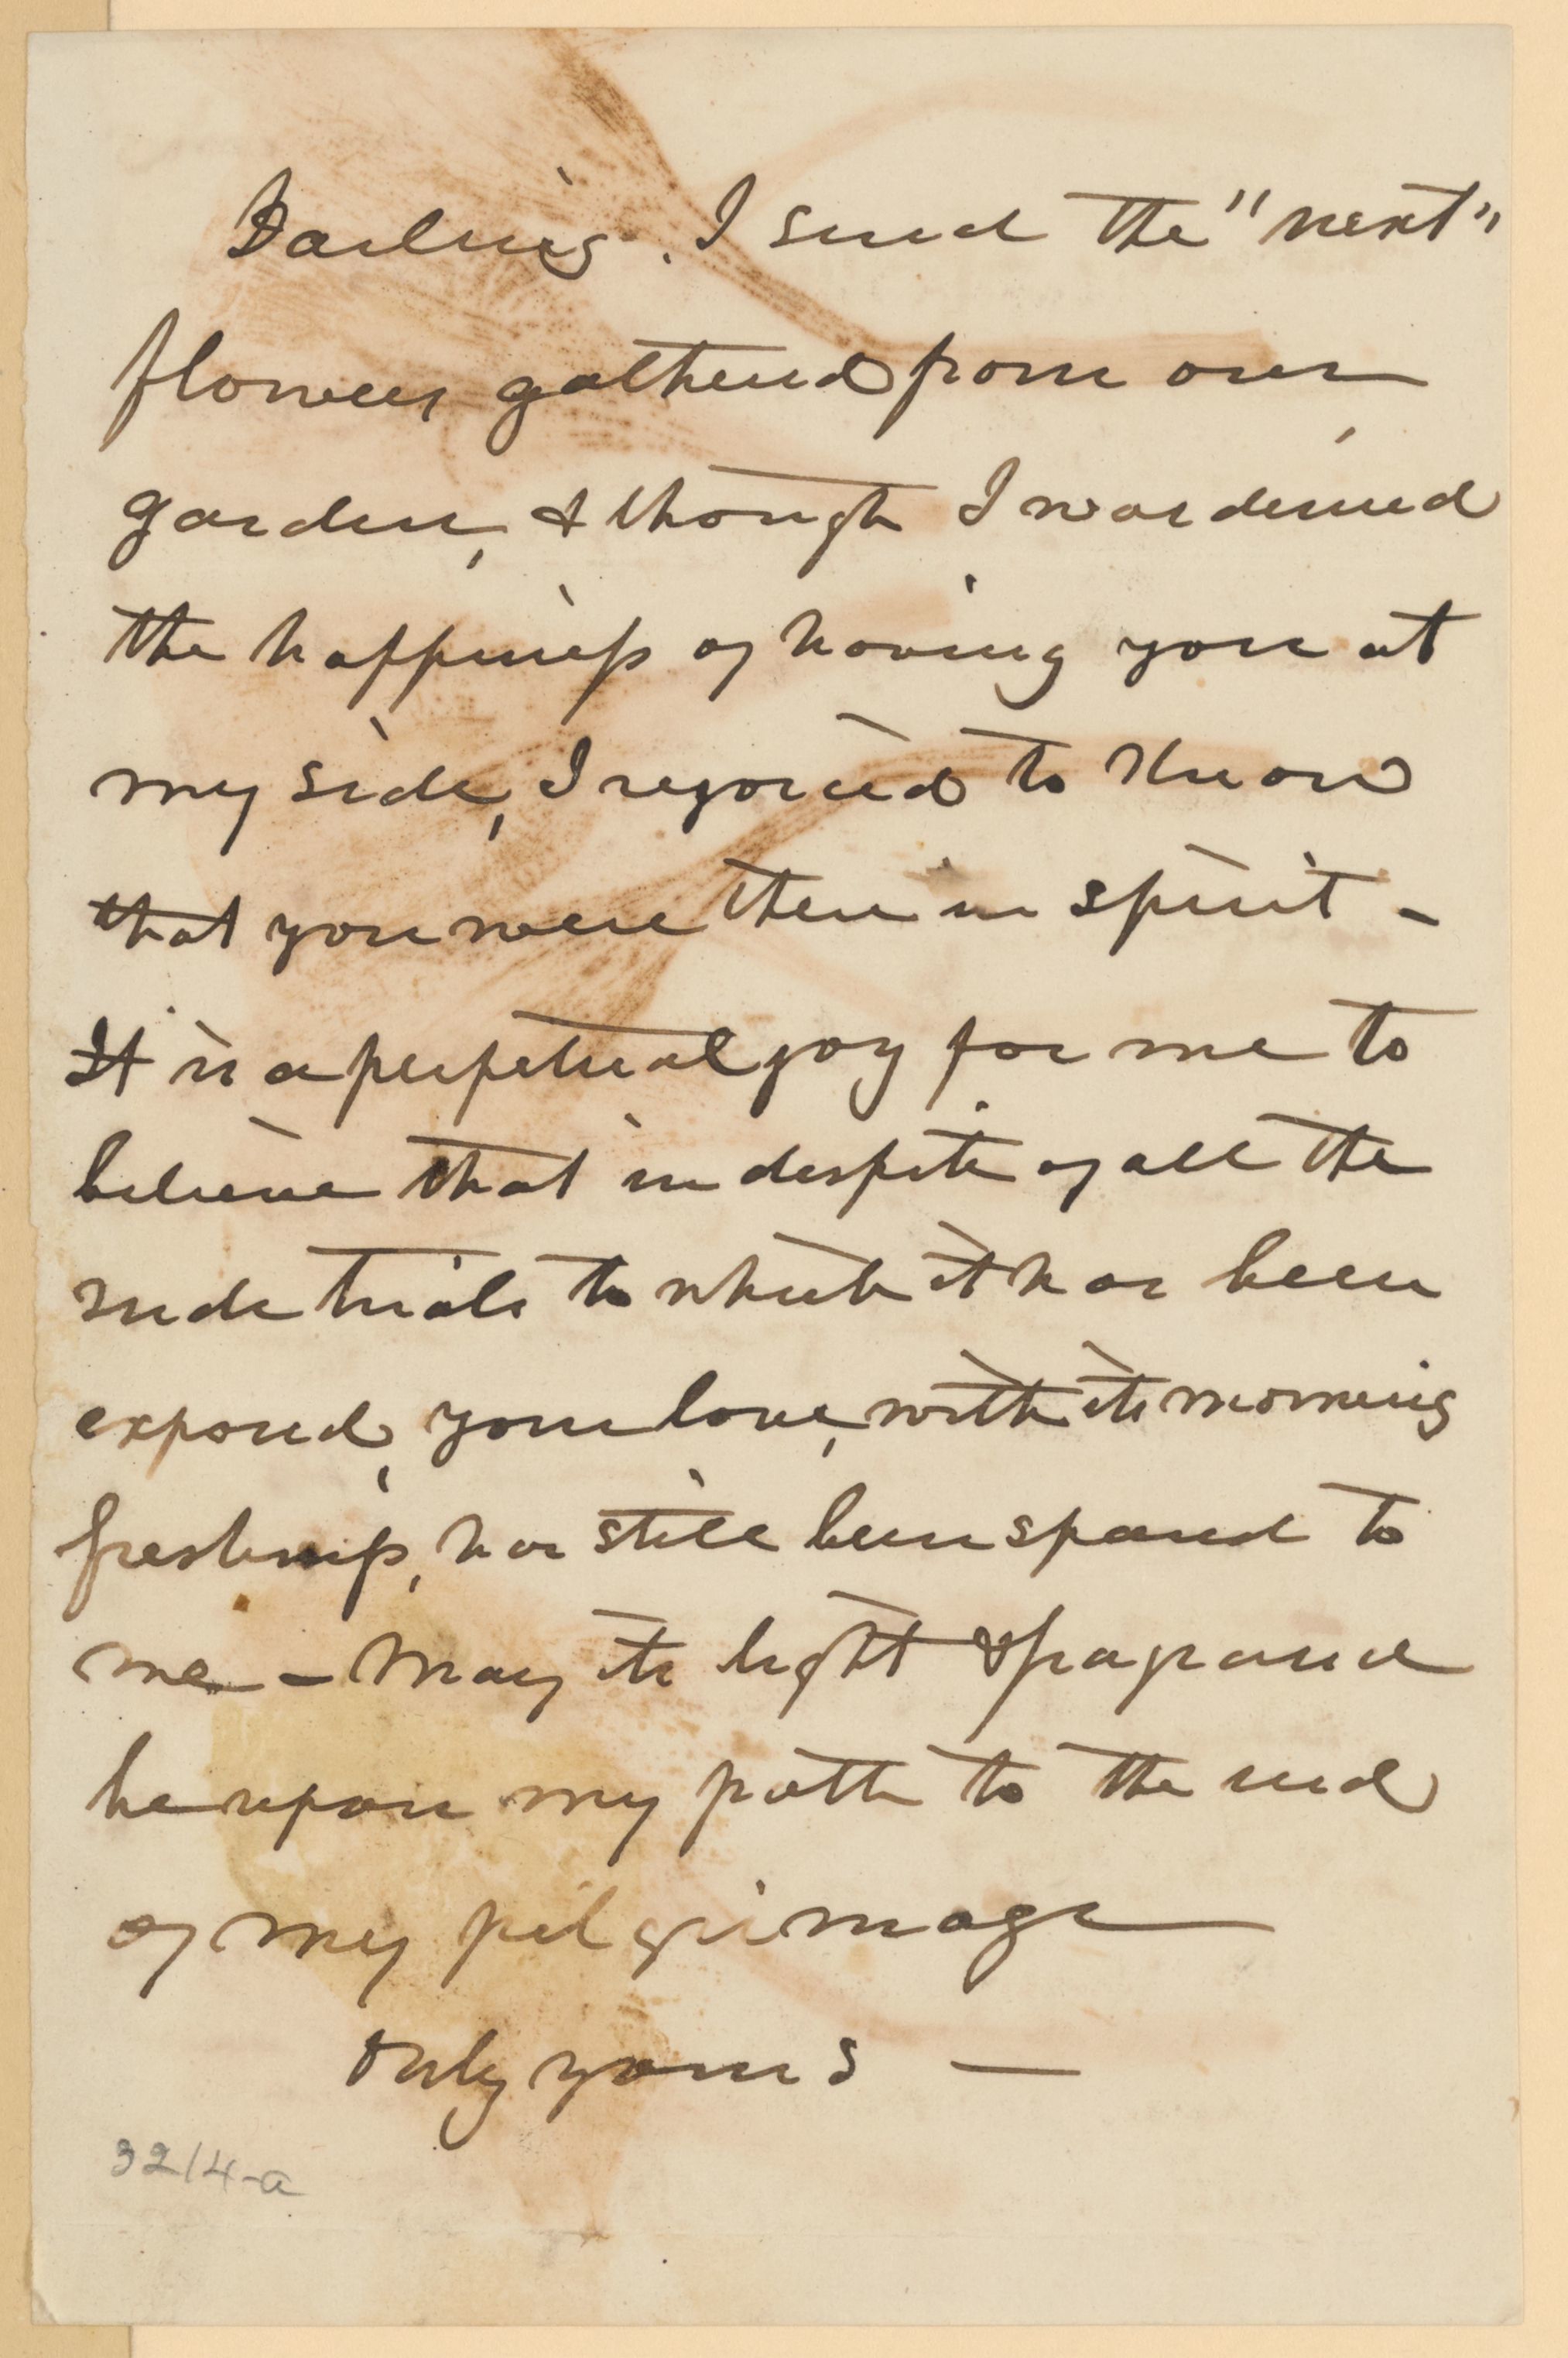 Darling. I send the "next"
flowers gathered from our
garden, & though I was denied
the happiness of having you at
my side, I rejoiced to know
that you were there in spirit -
It is a perpetual joy for me to
believe that in despite of all the
rude trials to which it has been
exposed, your love, with its morning
freshness, has still been spared to
me - May its light & fragrance
be upon my path to the end
of my pilgrimage
Only yours —
3214-a